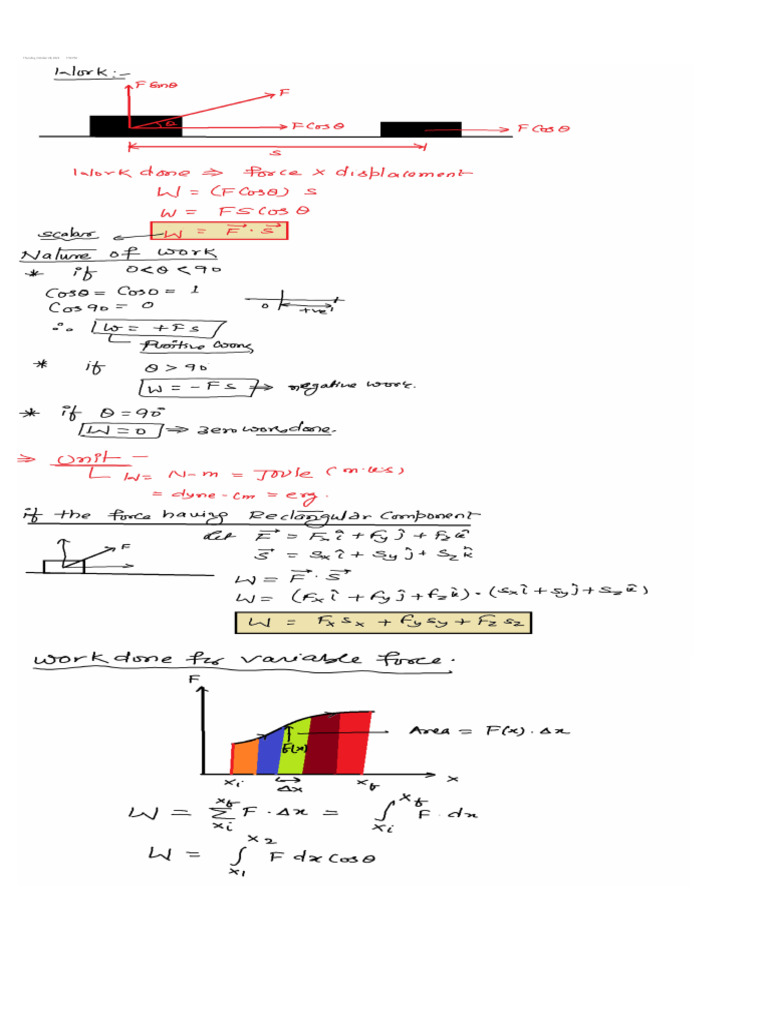 Work:-
F Sinθ
F
θ
F Cosθ
F Cosθ
s
Work done ⇒ force × displacement
W = (F Cosθ) s
W = FS Cosθ
scalar ← W = F⃗ · S⃗
Nature of work
* if 0<θ<90
Cosθ = Cos0 = 1
Cos 90 = 0
0 +ve
∴ W = +Fs
Positive work
* if θ > 90°
W = -Fs → negative work.
* if θ = 90°
W = 0 ⇒ zero work done.
⇒ Unit -
W = N-m = Joule (m.k.s)
= dyne-cm = erg.
if the force having Rectangular Component
let F⃗ = Fxî + Fyĵ + Fzk̂
F
S⃗ = Sxî + Syĵ + Szk̂
W = F⃗ · S⃗
W = (Fxî + Fyĵ + Fzk̂) · (Sxî + Syĵ + Szk̂)
W = FxSx + FySy + FzSz
work done for variable force.
F
F(x)
Area = F(x) · Δx
xi Δx xf x
W = Σ_{xi}^{xf} F · Δx = ∫_{xi}^{xf} F · dx
W = ∫_{x1}^{x2} F dx Cosθ